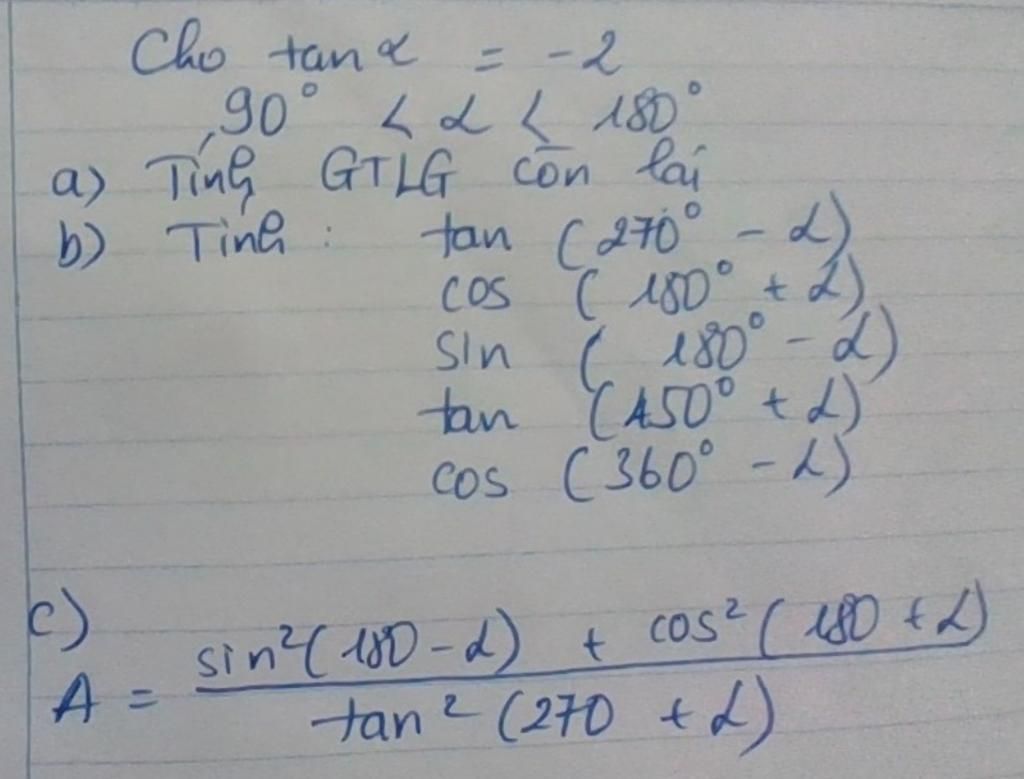 Cho tan α = -2
90° < α < 180°
a) Tính GTLG còn lại
b) Tính : tan (270° - α)
cos (180° + α)
sin (180° - α)
tan (450° + α)
cos (360° - α)
c)
A = \frac{sin²(180 - α) + cos²(180 + α)}{tan²(270 + α)}